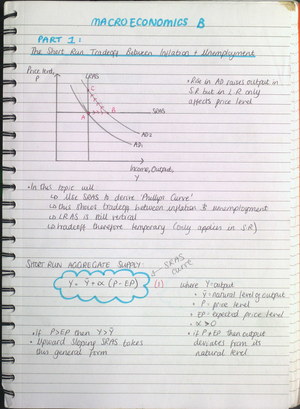 MACROECONOMICS B
PART 1:
The Short Run Tradeoff Between Inflation + Unemployment
Price level,
P
LRAS
C
A
B
SRAS
AD2
AD1
Income, Output,
Y
• Rise in AD raises output in
SR but in LR only
affects price level
• In this topic will
↳ Use SRAS to derive 'Phillips Curve'
↳ this shows tradeoff between inflation & unemployment
↳ LRAS is still vertical
↳ tradeoff therefore temporary (only applies in SR)
SHORT RUN AGGREGATE SUPPLY:
SRAS
curve
Y = Ȳ + α (P - EP) (1)
where Y = output
• Ȳ = natural level of output
• P = price level
• EP = expected price level
• α > 0
• if P > EP then Y > Ȳ
• Upward sloping SRAS takes
this general form
• if P ≠ EP then output
deviates from its
natural level